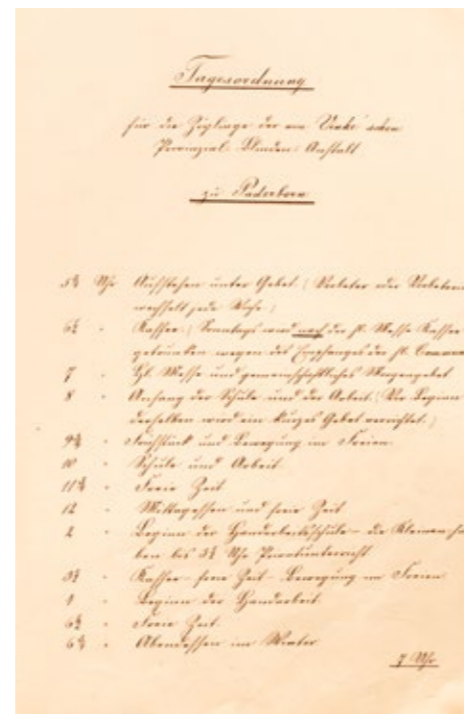 Tagesordnung
für die Zöglinge der von Vincke'schen
Provinzial-Blinden-Anstalt
zu Paderborn
Uhr Aufstehen unter Gebet. ( Vorbeter oder Vorbeterin
wechselt jede Woche. )
6½ " Kaffee. ( Sonntags wird nach der hl. Messe Kaffee
getrunken wegen des Empfanges der hl. Commu
7 " Hl. Messe und gemeinschaftliches Morgengebet
8 " Anfang der Schule und der Arbeit. ( Vor Beginn
derselben wird ein kurzes Gebet verrichtet. )
" Frühstück und Bewegung im Freien.
10 " Schule und Arbeit.
" Freie Zeit
12 " Mittagessen und freie Zeit
" Beginn der Handarbeitsschule - die Kleinen ha
ben bis 3½ Uhr Privatunterricht
3½ " Kaffee - freie Zeit - Bewegung im Freien
" Beginn der Handarbeit
" Freie Zeit.
" Abendessen im Winter
7 Uhr